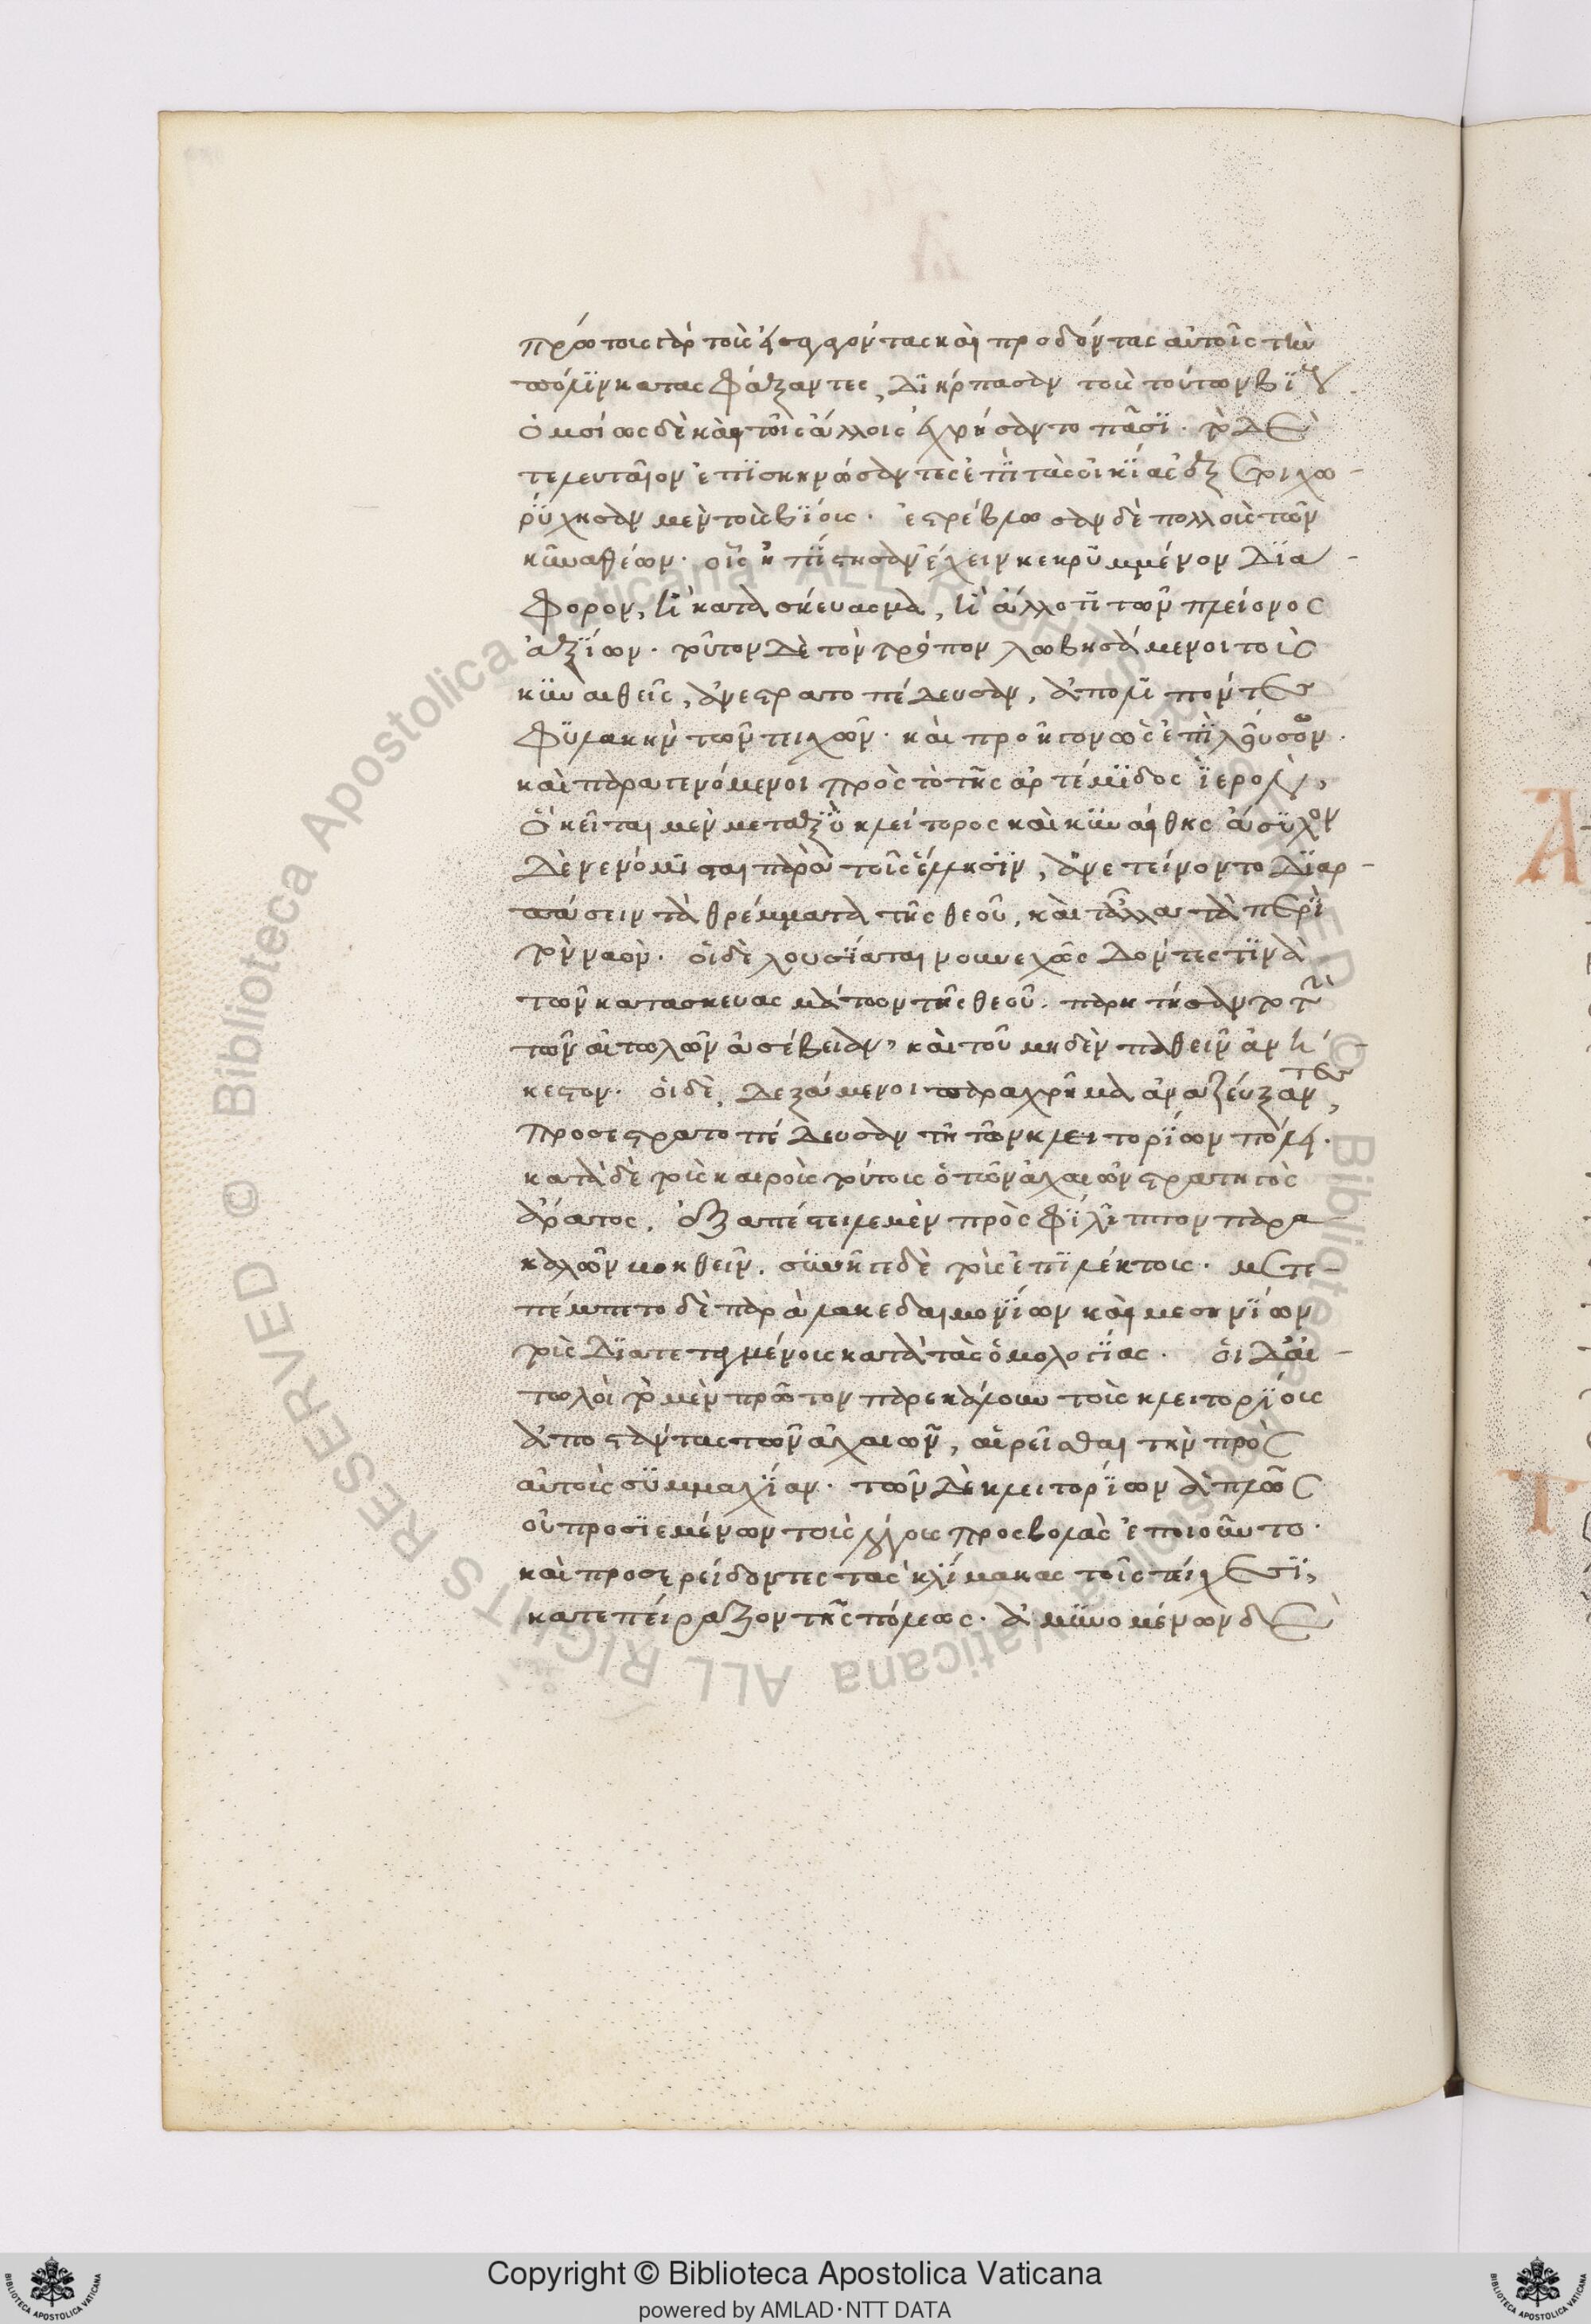 πρώτους γὰρ τοὺς εἰσαγαγόντας καὶ προδόντας αὐτοῖς τὴν
πόλιν κατασφάξαντες, διήρπασαν τοὺς τούτων βίους.
ὁμοίως δὲ καὶ τοῖς ἄλλοις ἐχρήσαντο πᾶσι. τὸ δὲ
τελευταῖον ἐπισκηνώσαντες ἐπὶ τὰς οἰκίας ἐξετοιχω-
ρύχησαν μὲν τοὺς βίους. ἐστρέβλωσαν δὲ πολλοὺς τῶν
κυναιθέων. οἷς ἠπίστησαν ἔχειν κεκρυμμένον διά-
φορον, ἢ κατασκεύασμα, ἢ ἄλλο τι τῶν πλείονος
ἀξίων. τοῦτον δὲ τὸν τρόπον λωβησάμενοι τοὺς
κυναιθεῖς, ἀνεστρατοπέδευσαν, ἀπολιπόντες
φυλακὴν τῶν τειχῶν. καὶ προῆγον ὡς ἐπὶ λούσων.
καὶ παραγενόμενοι πρὸς τὸ τῆς ἀρτέμιδος ἱερὸν,
ὃ κεῖται μὲν μεταξὺ κλείτορος καὶ κυναίθης ἄσυλον
δὲ νενόμισται παρὰ τοῖς ἕλλησιν, ἀνετείνοντο διαρ-
πάσειν τὰ θρέμματα τῆς θεοῦ, καὶ τἄλλα τὰ περὶ
τὸν ναόν. οἱ δὲ λουσιᾶται νουνεχῶς δόντες τινὰ
τῶν κατασκευασμάτων τῆς θεοῦ. παρῃτήσαντο τὴν
τῶν αἰτωλῶν ἀσέβειαν, καὶ τοῦ μηδὲν παθεῖν ἀνή-
κεστον. οἱ δὲ, δεξάμενοι παραχρῆμα ἀναζεύξαντες,
προσεστρατοπέδευσαν τῇ τῶν κλειτορίων πόλει.
κατὰ δὲ τοὺς καιροὺς τούτους ὁ τῶν ἀχαιῶν στρατηγὸς
ἄρατος, ἐξαπέστειλε μὲν πρὸς φίλιππον παρα-
καλῶν βοηθεῖν. συνῆγε δὲ τοὺς ἐπιλέκτους. μετε-
πέμπετο δὲ παρὰ λακεδαιμονίων καὶ μεσηνίων
τοὺς διατεταγμένους κατὰ τὰς ὁμολογίας. οἱ δ' αἰ-
τωλοὶ τὸ μὲν πρῶτον παρεκάλουν τοὺς κλειτορίους
ἀποστάντας τῶν ἀχαιῶν, αἱρεῖσθαι τὴν πρὸς
αὐτοὺς συμμαχίαν. τῶν δὲ κλειτορίων ἁπλῶς
οὐ προσιεμένων τοὺς λόγους προσβολὰς ἐποιοῦντο.
καὶ προσερείδοντες τὰς κλίμακας τοῖς τείχεσι,
κατεπείραζον τῆς πόλεως. ἀμυνομένων δὲ
Copyright © Biblioteca Apostolica Vaticana
powered by AMLAD·NTT DATA